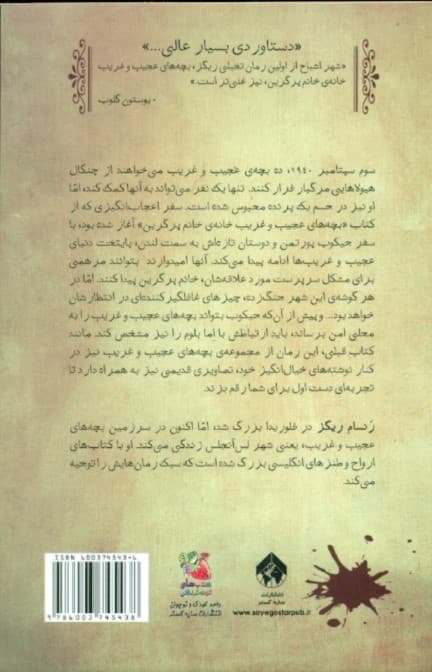 «دستاوردی بسیار عالی...»
«شهر اشباح از اولین رمان تخیلی ریگز، بچه‌های عجیب و غریب
خانه‌ی خانم پرگرین، نیز غنی‌تر است.»
- بوستون گلوب
سوم سپتامبر ۱۹۴۰، ده بچه‌ی عجیب و غریب می‌خواهند از چنگال
هیولاهایی مرگبار فرار کنند. تنها یک نفر می‌تواند به آنها کمک کند، امّا
او نیز در جسم یک پرنده محبوس شده است. سفر اعجاب‌انگیزی که از
کتاب «بچه‌های عجیب و غریب خانه‌ی خانم پرگرین» آغاز شده بود، با
سفر جیکوب پورتمن و دوستان تازه‌اش به سمت لندن، پایتخت دنیای
عجیب و غریب‌ها ادامه پیدا می‌کند. آنها امیدوارند بتوانند مرهمی
برای مشکل سرپرست مورد علاقه‌شان، خانم پرگرین پیدا کنند. امّا در
هر گوشه‌ی این شهر جنگ‌زده، چیزهای غافلگیر کننده‌ای در انتظارشان
خواهد بود... و پیش از آن‌که جیکوب بتواند بچه‌های عجیب و غریب را به
محلی امن برساند، باید ارتباطش با اما بلوم را نیز مشخص کند. مانند
کتاب قبلی، این رمان از مجموعه‌ی بچه‌های عجیب و غریب نیز در
کنار نوشته‌های خیال‌انگیز خود، تصاویری قدیمی نیز به همراه دارد تا
تجربه‌ای دست اول برای شما رقم بزند.
رَنسام ریگز در فلوریدا بزرگ شد، امّا اکنون در سرزمین بچه‌های
عجیب و غریب، یعنی شهر لس‌آنجلس زندگی می‌کند. او با کتاب‌های
ارواح و طنزهای انگلیسی بزرگ شده است که سبک رمان‌هایش را توجیه
می‌کند.
ISBN 600374543-6
9 786003 745438
واحد کودک و نوجوان
انتشارات سایه گستر
انتشارات
سایه گستر
www.sayegostarpub.ir